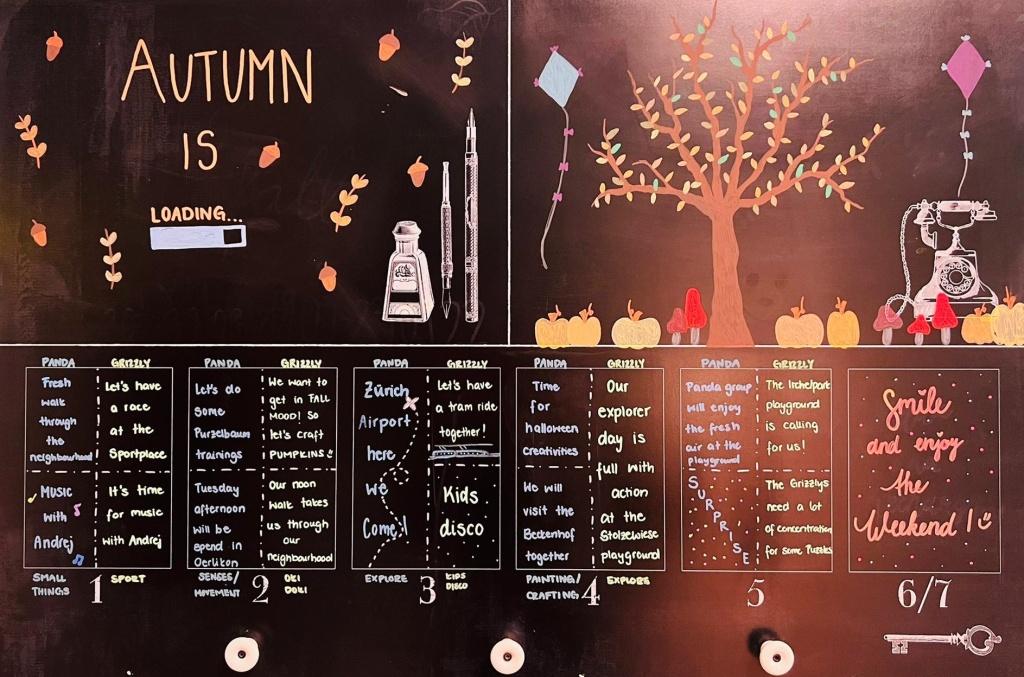 AUTUMN
IS
LOADING...
PANDA
Fresh
walk
through
the
neighbourhood
MUSIC
with
Andrej
SMALL
THINGS
GRIZZLY
Let's have
a race
at the
Sportplace
It's time
for music
with Andrej
SPORT
1
PANDA
Let's do
some
Purzelbaum
trainings
Tuesday
afternoon
will be
spend in
Oerlikon
SENSES/
MOVEMENT
GRIZZLY
We want to
get in FALL
MOOD! So
let's craft
PUMPKINS
Our noon
walk takes
us through
our
neighbourhood
OKI
DOKI
2
PANDA
Zürich
Airport
here
We
Come!
EXPLORE
GRIZZLY
Let's have
a tram ride
together!
Kids
disco
KIDS
DISCO
3
PANDA
Time
for
halloween
creativities
We will
visit the
Beckenhof
together
PAINTING/
CRAFTING
GRIZZLY
Our
explorer
day is
full with
action
at the
Stolzewiese
playground
EXPLORE
4
PANDA
Panda group
will enjoy
the fresh
air at the
playground
SURPRISE
GRIZZLY
The Irchelpark
playground
is calling
for us!
The Grizzlys
need a lot
of concentration
for some Puzzles
5
Smile
and enjoy
the
Weekend!
6/7